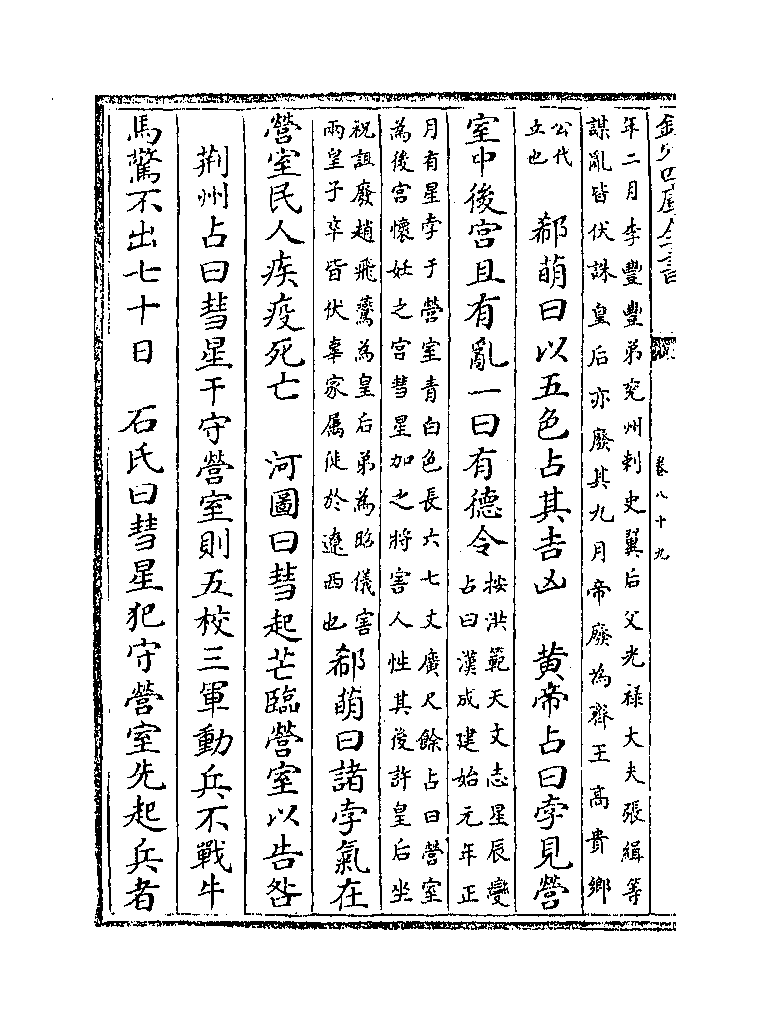 欽定四庫全書
卷八十九
年二月李豐豐弟兖州刺史翼后父光禄大夫張緝等
謀亂皆伏誅皇后亦廢其九月帝廢為齊王高貴鄉
公代
立也
郗萌曰以五色占其吉凶　黄帝占曰孛見營
室中後宫且有亂一曰有德令
按洪範天文志星辰變
占曰漢成建始元年正
月有星孛于營室青白色長六七丈廣尺餘占曰營室
為後宫懷妊之宫彗星加之将害人性其後許皇后坐
祝詛廢趙飛鷰為皇后弟為昭儀害
兩皇子卒皆伏辜家属徙於遼西也
郗萌曰諸孛氣在
營室民人疾疫死亡　河圖曰彗起芒臨營室以告咎
荆州占曰彗星干守營室則五校三軍動兵不戰牛
馬驚不出七十日　石氏曰彗星犯守營室先起兵者